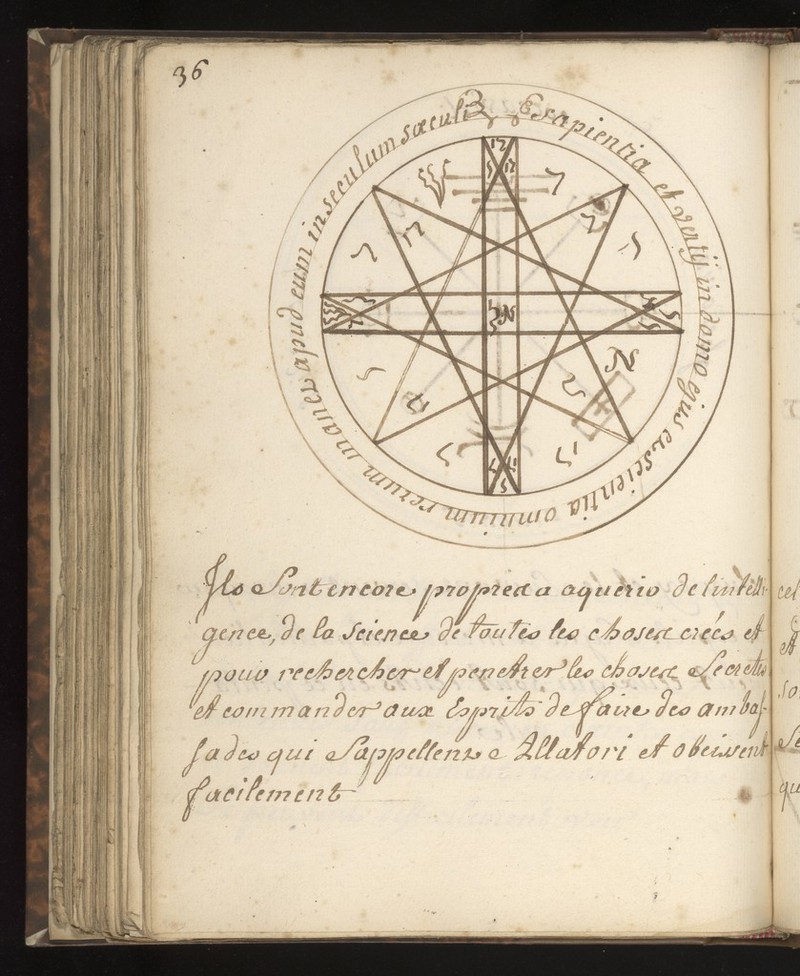 36
Esapientia et vertij in domo ejus et scientia omnium rerum manet apud eum in seculum sæculi
Ils sont encore propres a aquerir de lintelli-
gence, de la science de toutes les choses créés et
pour rechercher et penetrer les choses secretes
et commander aux Esprits de faire des ambas-
sades qui sappellent Allatori et obeissent
facilement